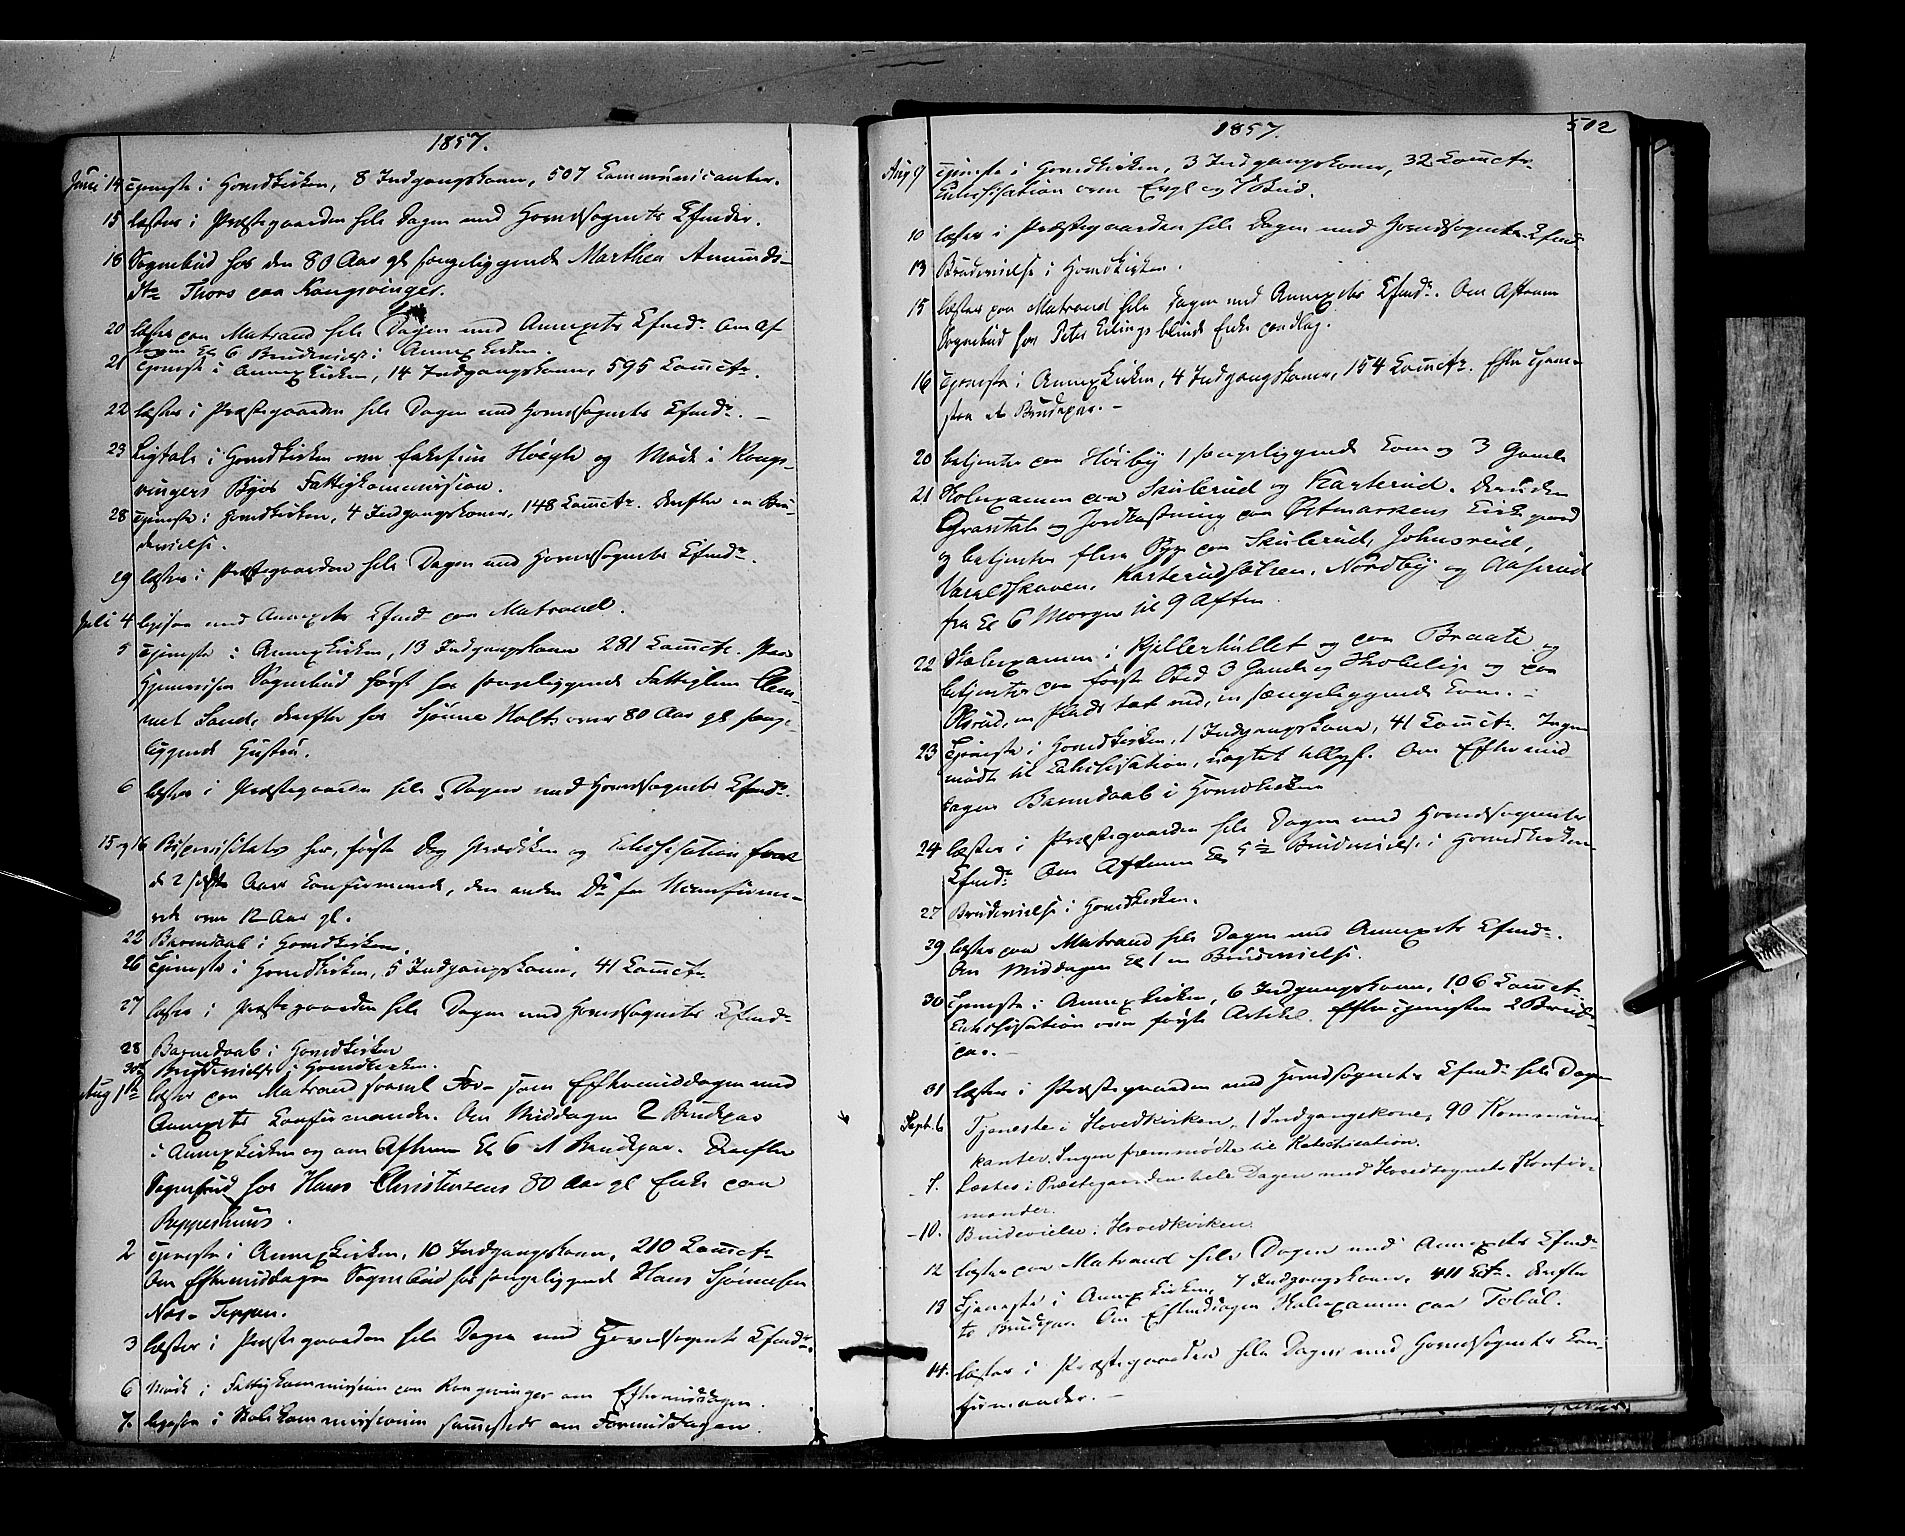 1857.
Juni 14 Tjeneste i Hovedkirken, 8 Indgangskoner, 507 Communicanter.
15 læste i Præstegaarden hele Dagen med Hovedsognets Cfmder.
18 Sognebud hos den 80 Aar gl sengeliggende Marthea Amunds-
dtr Thors paa Kongsvinger.
20 læste paa Matrand hele Dagen med Annexets Cfmdr. Om Af
tenen Kl 6 Brudevielse i Annexkirken.
21 Tjeneste i Annexkirken, 14 Indgangskoner, 595 Comctr.
22 læste i Præstegaarden hele Dagen med Hovedsognets Cfmdr. –
23 Ligtale i Hovedkirken over Høegh og Møde i Kongs-
vingers Byes Fattigkommission.
28 Tjeneste i Hovedkirken, 4 Indgangskoner, 148 Comctr. Derefter en Bru-
devielse.
29 læste i Præstegaarden hele Dagen med Hovedsognets Cfmdr.
Juli 4 ligesaa med Annexets Cfmd paa Matrand.
5 Tjeneste i Annexkirken, 13 Indgangskoner 281 Comctr. Paa
Hjemreisen Sognebud først hos sengeliggende Fattiglem Clem-
met Sand, derefter hos Sjønne Holts over 80 Aar gl senge-
liggende Hustru.
6 læste i Præstegaarden hele Dagen med Hovedsognets Cfmdr.
15 og 16 Bispevisitats her, første Dag Prædiken og Catechisation for
de 2 sidste Aars Confirmerede, den anden Do for Uconfirme-
rede over 12 Aar gl.
22 Barnedaab i Hovedkirken.
26 Tjeneste i Hovedkirken, 5 Indgangskoner, 41 Comctr
27 læste i Præstegaarden hele Dagen med Hovedsognets Cfmdr
28 Barnedaab i Hovedkirken
30te Brudevielse i Hovedkirken.
Aug 1ste læste paa Matrand saavel For- som Eftermiddagen med
Annexets Confirmander. Om Middagen 2 Brudepar
i Annexkirken og om Aftenen Kl 6 1 Brudepar. Derefter
Sognebud hos Hans Christensens 80 Aar gl Enke paa
Reppeshuus.
2 Tjeneste i Annexkirken, 10 Indgangskoner, 210 Comctr
Om Eftermiddagen Sognebud hos sengeliggende Hans Sjønnesen
Nor- Teppen.
3 læste i Præstegaarden hele Dagen med Hovedsognets Cfmdr.
6 Møde i Fattigkommission paa Kongsvinger om Eftermiddagen.
7. ligesaa i Skolekommissionen sammesteds om Formiddagen.
1857.
502
Aug 9 Tjeneste i Hovedkirken, 3 Indgangskoner, 32 Comctr.
Catechisation over Evgl og 7 Bud.
10 læste i Præstegaarden hele Dagen med Hovedsognets Cfmd
13 Brudevielse i Hovedkirken.
15 læste paa Matrand hele Dagen med Annexets Cfmdr. Om Aftenen
Sognebud hos Peter Erlings blinde Enke
16 Tjeneste i Annexkirken, 4 Indgangskoner, 154 Comctr. Efter Tjene-
sten et Brudepar. –
20 betjente paa Høiby 1 sengeliggende Kone og 3 Gamle
21 Skolexamen paa Skulerud og Karterud. Desuden
Gravtale og Jordkastning paa Østmarkens Kirkegaard
og betjente flere Syge paa Skulerud, Johnsrud,
Varaldskoven, Karterudsætren, Nordby og Aaserud
fra Kl 6 Morgen til 9 Aften.
22 Skolexamen i Kjellerhullet og paa Braate og
betjente paa første Sted 3 Gamle og Skrøbelige og paa
en Plads tæt ved, en sængeliggende Kone. –
23 Tjeneste i Hovedkirken, 1 Indgangskone, 41 Comctr. Ingen
mødte til Catechisation, uagtet tillyst. Om Eftermid-
dagen Barnedaab i Hovedkirken
24 læste i Præstegaarden hele Dagen med Hovedsognets
Cfmdr. Om Aftenen Kl 5 ½ Brudevielse i Hovedkirken
27 Brudevielse i Hovedkirken.
29 læste paa Matrand hele Dagen med Annexets Cfmdr.
Om Middagen Kl 1 en Brudevielse.
30 Tjeneste i Annexkirken, 6 Indgangskoner, 106 Comctr.
Catechisation over første Artikel. Efter Tjenesten 2 Brude-
par. –
31 læste i Præstegaarden med Hovedsognets Cfmdr hele Dagen
Sept. 6 Tjeneste i Hovedkirken, 1 Indgangskone, 90 Kommuni-
kanter. Ingen fremmødte til Katechisation.
- 7. Læstes i Præstegaarden hele Dagen med Hovedsognets Konfir-
mander.
- 10. Brudevielse i Hovedkirken.
12 læste paa Matrand hele Dagen med Annexets Cfmdr
13 Tjeneste i Annexkirken, 7 Indgangskoner, 411 Cctr. derefter
to Brudepar. Om Eftermdagen Skolexamen paa Tobøl.
14. læste i Præstegaarden hele Dagen med Hovedsognets Con-
firmander. –